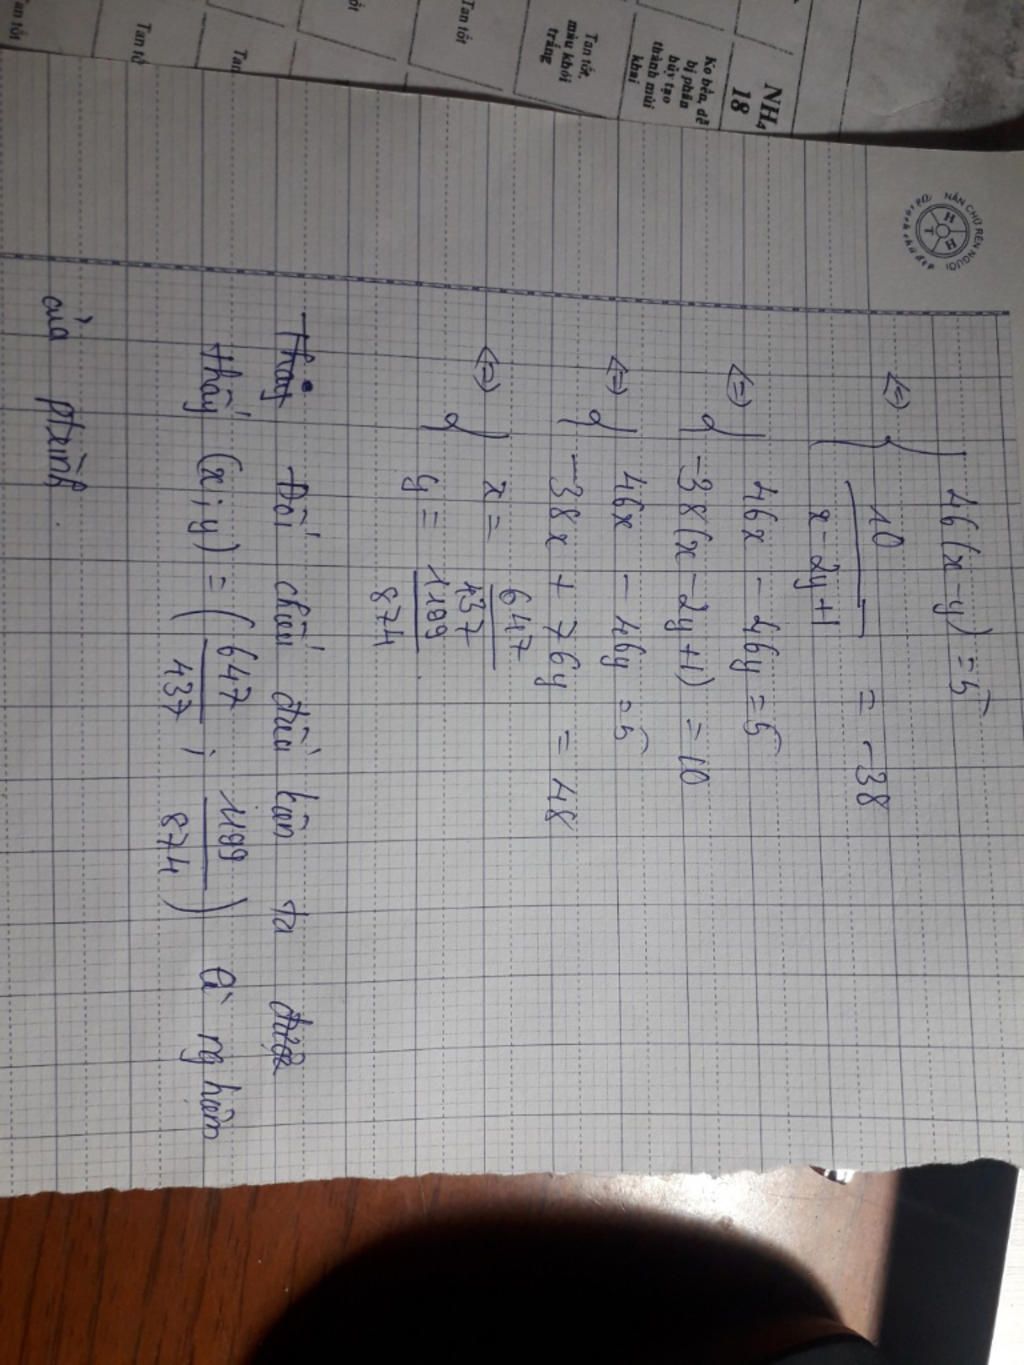 Tan tốt
Tan tốt
Tan
Tan tốt
Tan tốt,
màu khói
trắng
Ko bền, dễ
bị phân
hủy tạo
thành mùi
khai
NH₄
18
NẮN CHỮ RÈN NGƯỜI
H T H
46(x-y) = 5
<=> { 10/(x-2y+1) = -38
<=> { 46x - 46y = 5
-38(x-2y+1) = 10
<=> { 46x - 46y = 5
-38x + 76y = 48
<=> { x = 647/437
y = 1199/874
Thay Đối chiếu điều kiện ta được
thấy (x; y) = (647/437; 1199/874) là nghiệm
của ptrình.